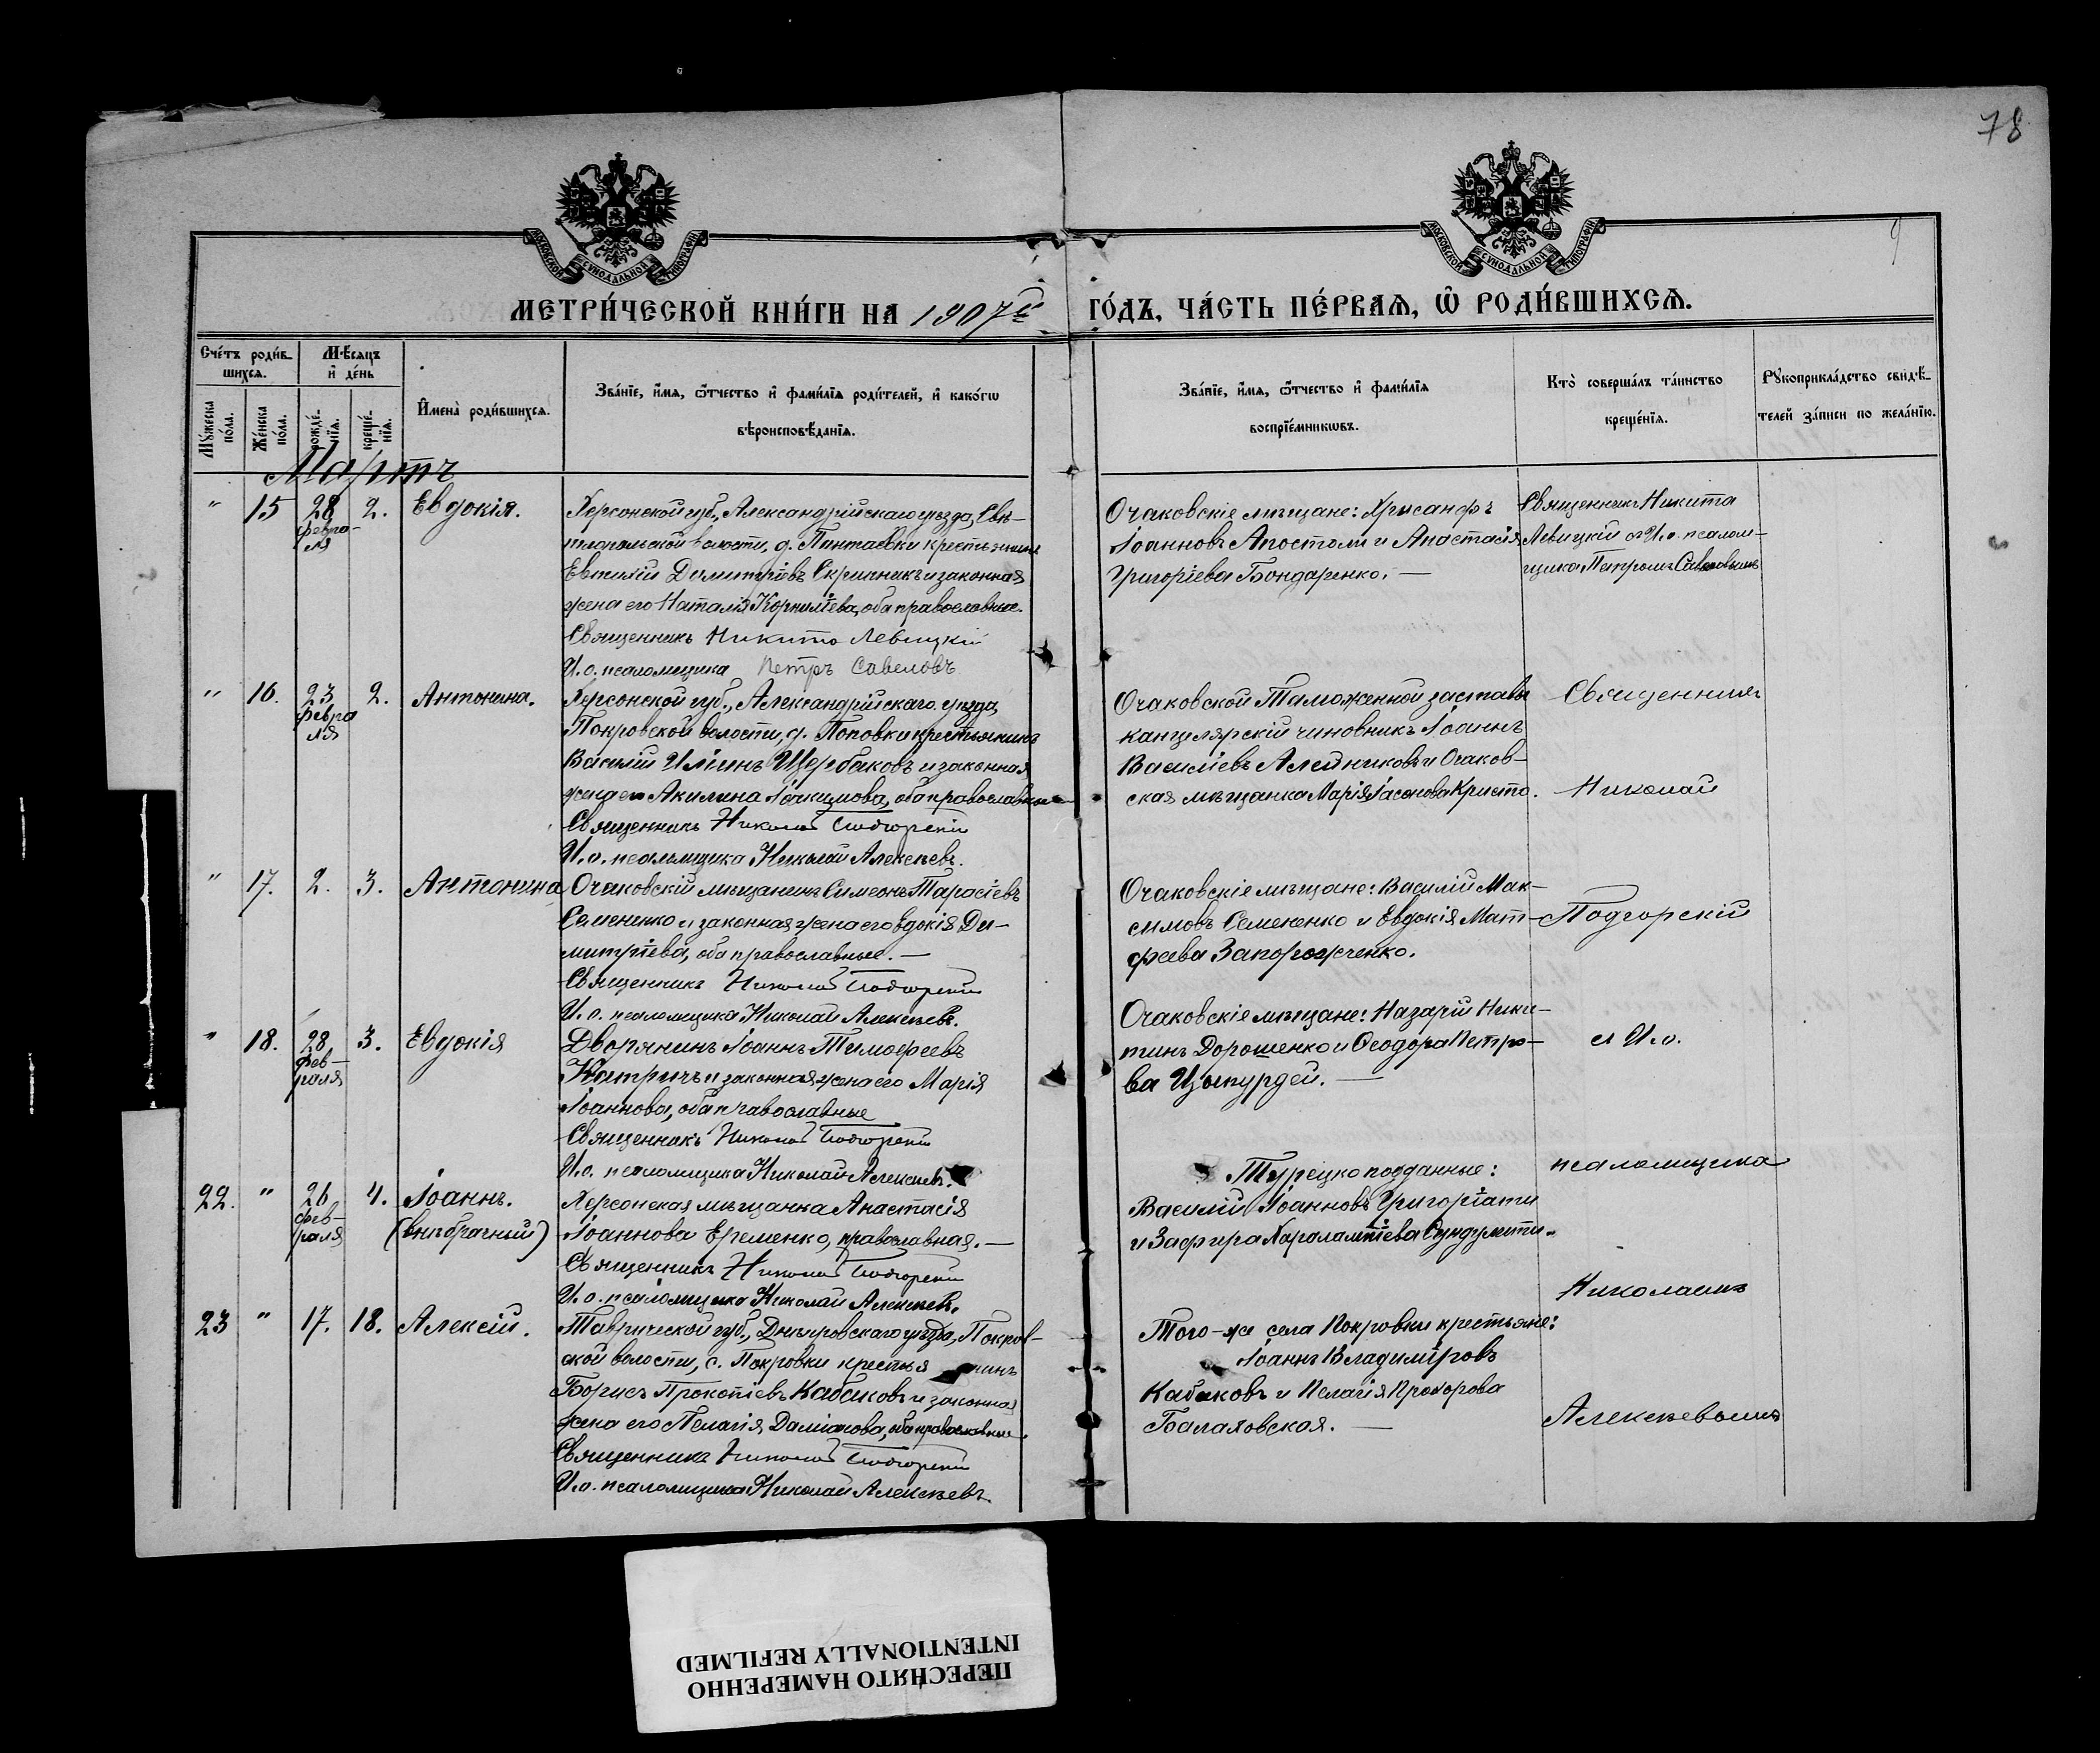 78
МОСКОВСКОЙ СУНОДАЛЬНОЙ ТИПОГРАФІИ
МОСКОВСКОЙ СУНОДАЛЬНОЙ ТИПОГРАФІИ
МЕТРИ́ЧЕСКОЙ КНИ́ГИ НА 1907й ГО́ДЪ, ЧА́СТЬ ПЕ́РВАЯ, Ѡ РОДИ́ВШИХСЯ.
Сче́тъ роди́вшихся.
Мѣсяцъ и де́нь
Му́жеска по́ла.
Же́нска по́ла.
рожде́нїя.
креще́нїя.
Имена̀ роди́вшихся.
Зва́нїе, и́мя, ѻ́тчество и фами́лїя роди́телей, и како́гѡ
вѣроисповѣ́данїя.
Зва́нїе, и́мя, ѻ́тчество и фами́лїя
воспрїе́мникѡвъ.
Кто̀ соверша́лъ та́инство
креще́нїя.
Рꙋкоприкла́дство свидѣ́телей за́писи по жела́нїю.
Мартъ
" 15 28 февраля 2. Евдокія.
Херсонской губ., Александрійскаго уѣзда, Свѣ-
тлопольской волости, д. Пантаевки крестьянинъ
Евѳимій Димитріевъ Скрипникъ и законная
жена его Наталія Корниліева, оба православные.
Священникъ Никита Левицкій
И.о. псаломщика Петръ Савеловъ
Очаковскіе мѣщане: Хрисанфъ
Іоанновъ Апостоли и Анастасія
Григоріева Бондаренко. —
Священникъ Никита
Левицкій съ И.о. псалом-
щика Петромъ Савеловымъ
" 16. 23 февраля 2. Антонина.
Херсонской губ., Александрійскаго уѣзда,
Покровской волости, д. Поповки крестьянинъ
Василій Иліинъ Щербаковъ и законная
жена его Акилина Іоакимова, оба православные
Священникъ Николай Подгорскій
И.о. псаломщика Николай Алексѣевъ.
Очаковской Таможенной заставы
канцелярскій чиновникъ Іоаннъ
Василіевъ Алейниковъ и Очаков-
ская мѣщанка Марія Іасонова Кристо.
Священникъ
Николай
" 17. 2. 3. Антонина
Очаковскій мѣщанинъ Симеонъ Тарасіевъ
Семененко и законная жена его Евдокія Ди-
митріева, оба православные. —
Священникъ Николай Подгорскій
И.о. псаломщика Николай Алексѣевъ.
Очаковскіе мѣщане: Василій Мак-
симовъ Семененко и Евдокія Мат-
феева Запорожченко.
Подгорскій
" 18. 28 февраля 3. Евдокія
Дворянинъ Іоаннъ Тимофеевъ
Катричъ и законная жена его Марія
Іоаннова, оба православные
Священникъ Николай Подгорскій
И.о. псаломщика Николай Алексѣевъ.
Очаковскіе мѣщане: Назарій Ники-
тинъ Дорошенко и Ѳеодора Петро-
ва Цынурдей. —
съ И.о.
псаломщика
22. " 26 февраля 4. Іоаннъ.
(внѣбрачный)
Херсонская мѣщанка Анастасія
Іоаннова Еременко, православная. —
Священникъ Николай Подгорскій
И.о. псаломщика Николай Алексѣевъ.
Турецко подданные:
Василій Іоанновъ Григоріати
и Зафира Харалампіева Сундумети.
Николаемъ
23 " 17. 18. Алексій.
Таврической губ., Днѣпровскаго уѣзда, Покров-
ской волости, с. Покровки крестьянинъ
Борисъ Прокопіевъ Кабаковъ и законная
жена его Пелагія Даміанова, оба православные.
Священникъ Николай Подгорскій
И.о. псаломщика Николай Алексѣевъ.
Того-же села Покровки крестьяне:
Іоаннъ Владиміровъ
Кабаковъ и Пелагія Прохорова
Балаховская. —
Алексѣевымъ
ПЕРЕСНЯТО НАМЕРЕННО
INTENTIONALLY REFILMED